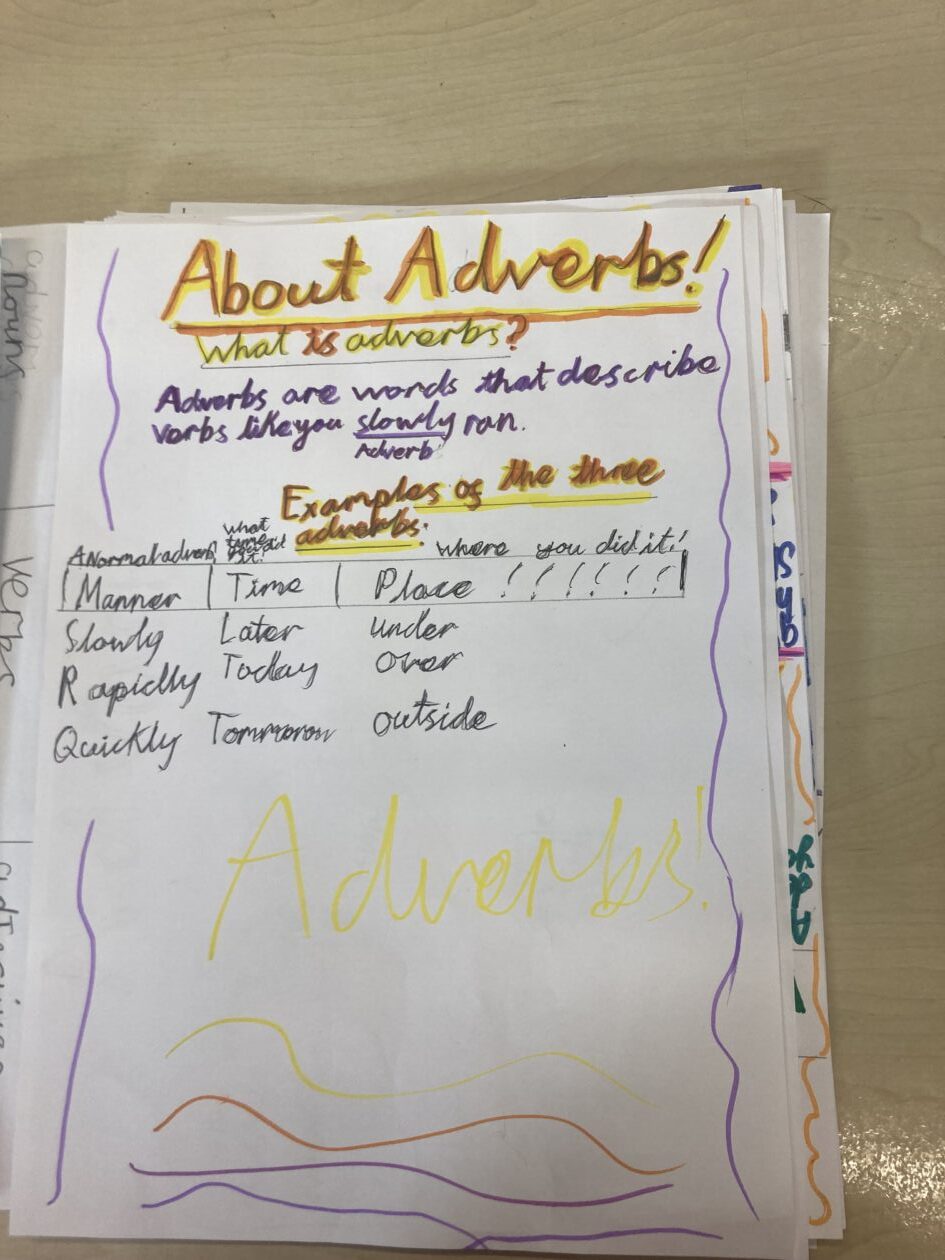 About Adverbs!
What is adverbs?
Adverbs are words that describe
verbs like you slowly ran.
Adverb
Examples of the three
adverbs:
A Normal adverb
what
time
you did
it!
where you did it!
Manner Time Place !!!!!!
Slowly Later under
Rapidlly Today over
Quickly outside
Adverbs!
Nouns
Verbs